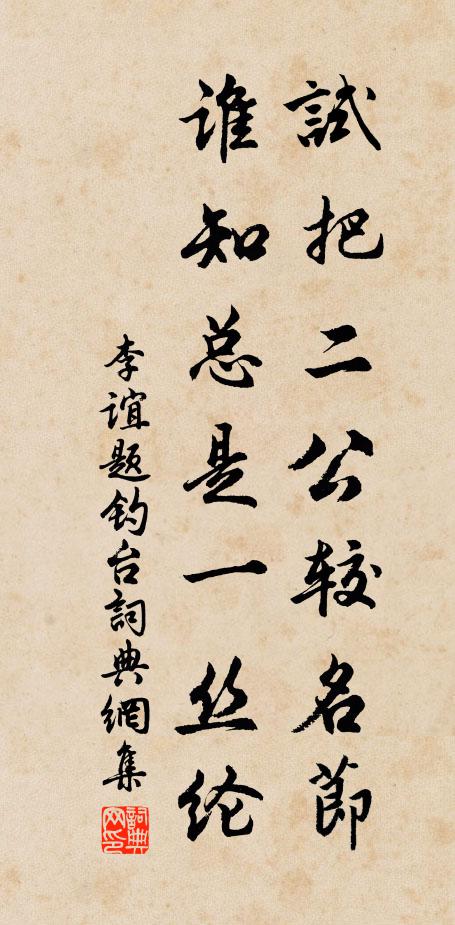 試把二公較名節
谁知总是一丝纶
李谊题钓台詞典網集
詞典网印